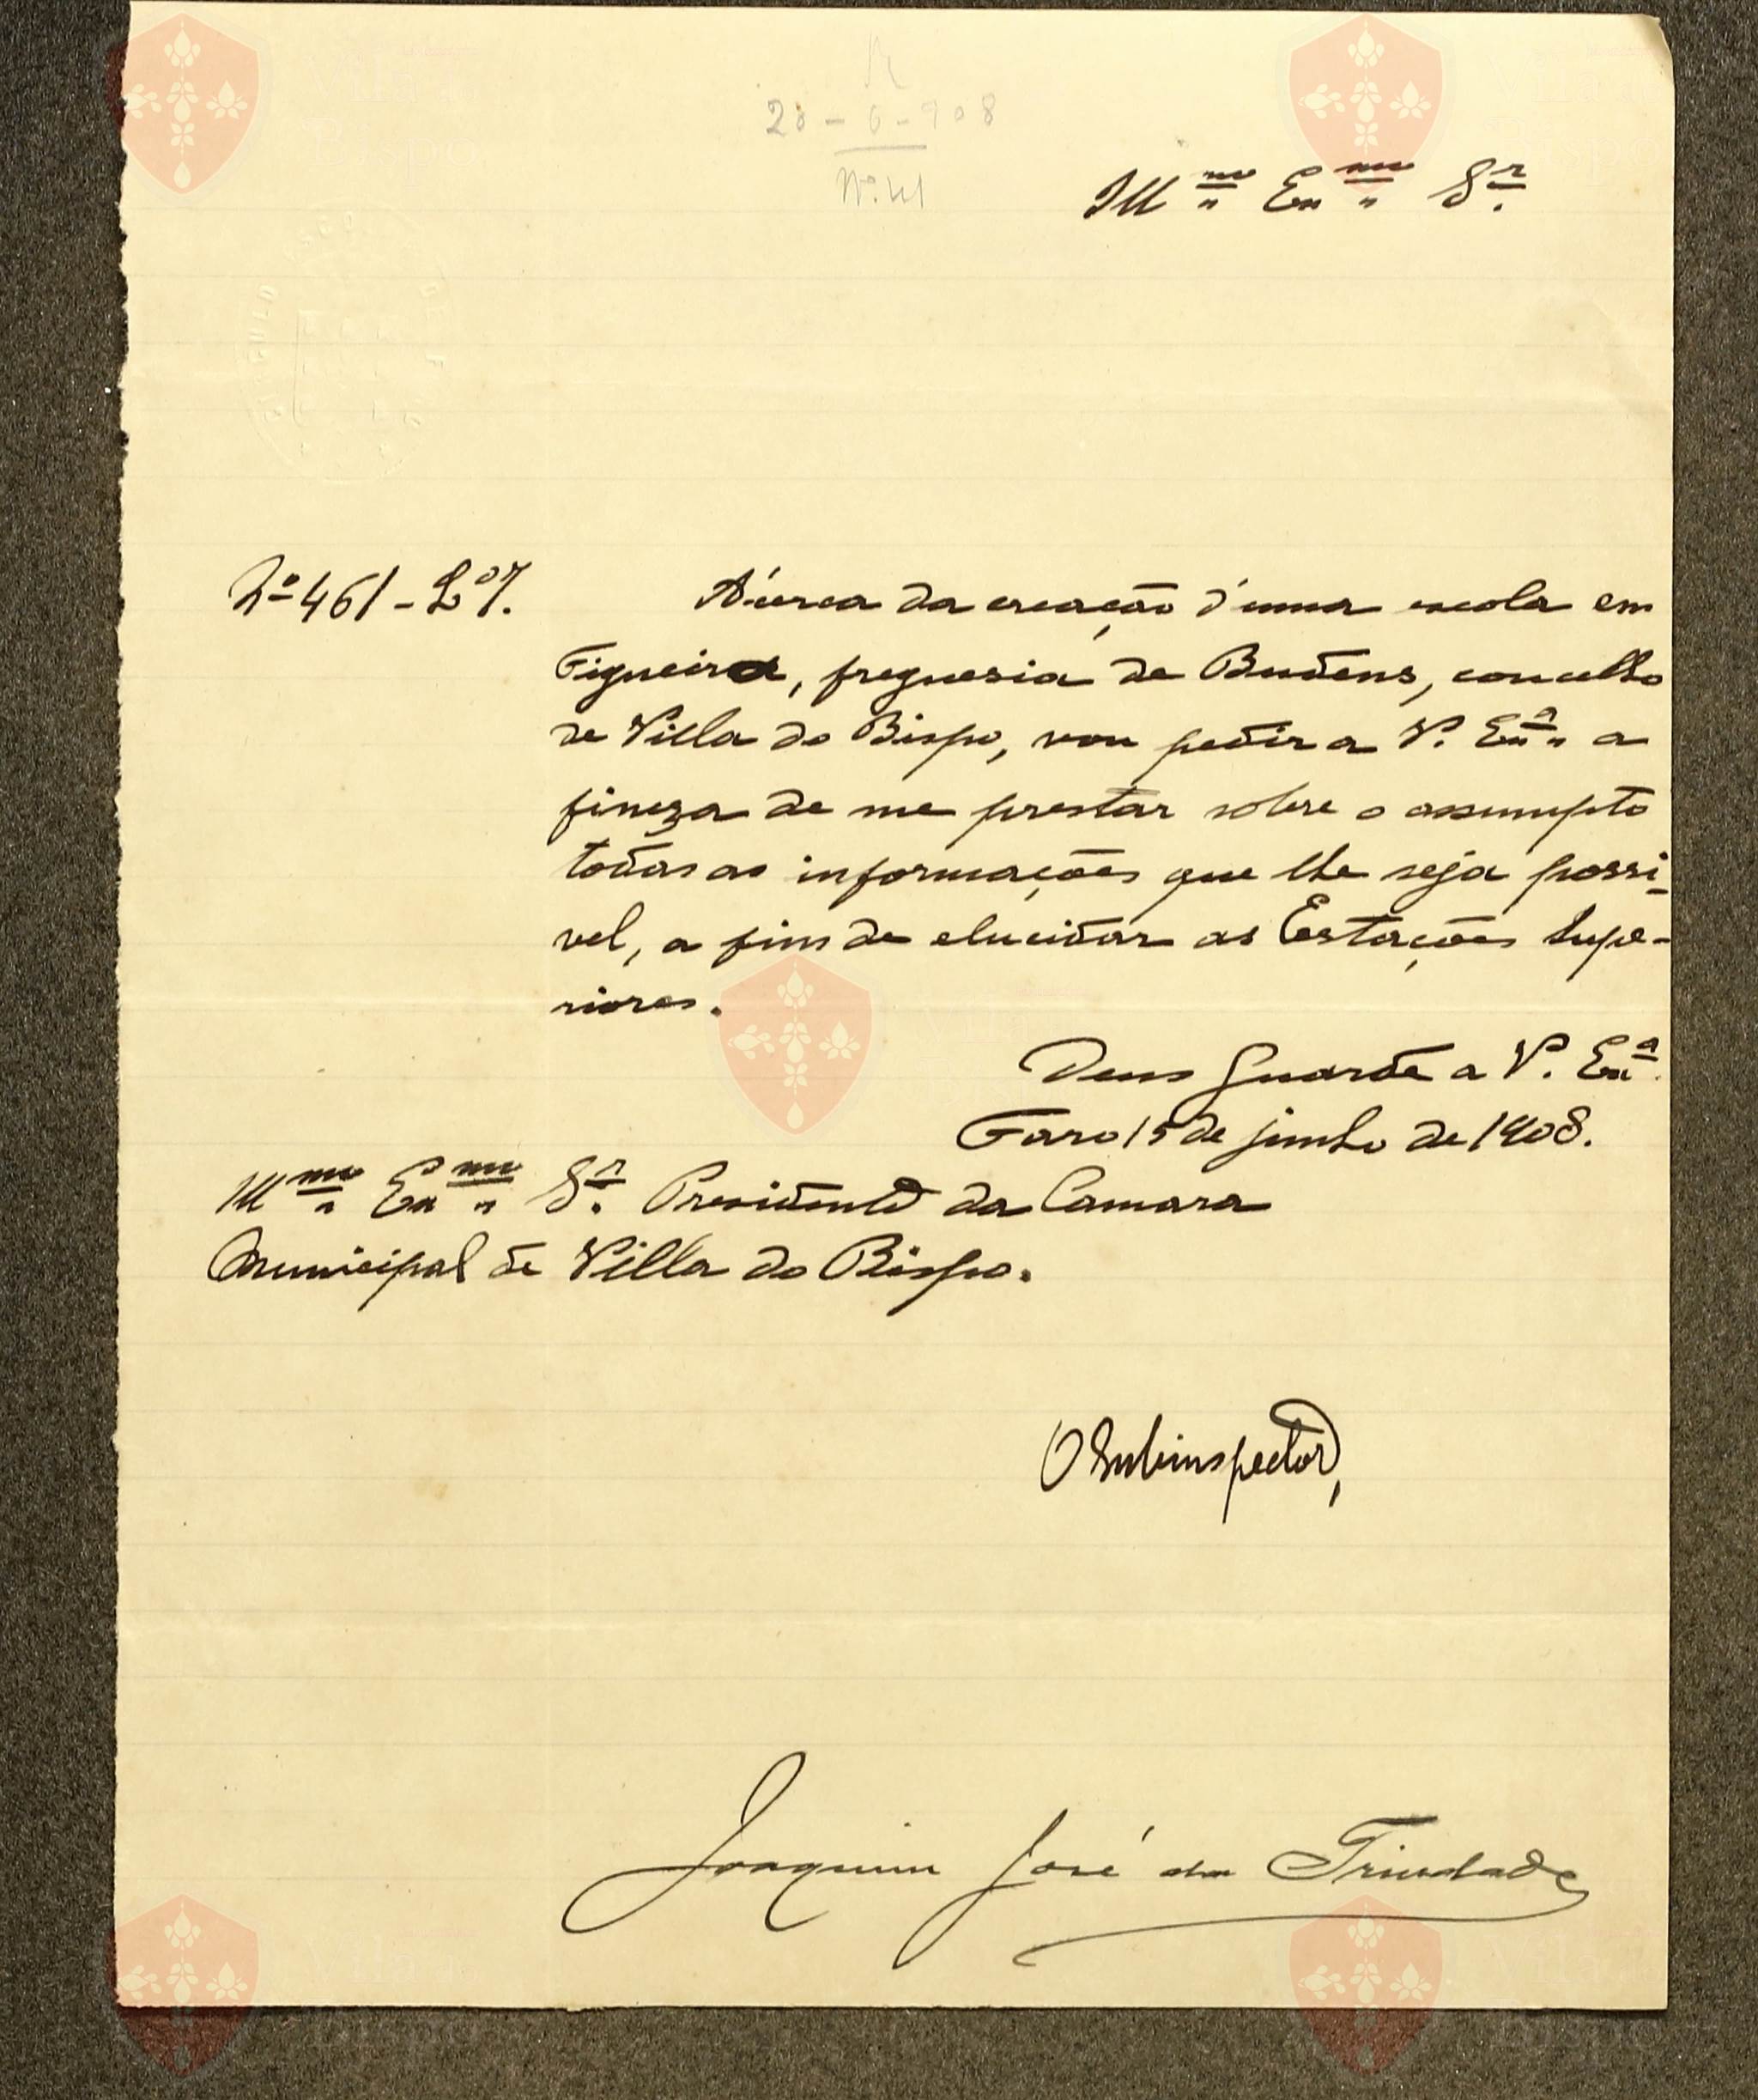 R
28-6-908
Nº. 41
Illmo Exmo Sr.
Nº 461 - Lº 7.
Ácerca da creação d'uma escola em
Figueira, freguesia de Budens, concelho
de Villa do Bispo, vou pedir a V. Exª a
fineza de me prestar sobre o assumpto
todas as informações que lhe seja possi-
vel, a fim de elucidar as Estações Supe-
riores.
Deus Guarde a V. Exª
Faro 15 de junho de 1908.
Illmo Exmo Sr. Presidente da Camara
Municipal de Villa do Bispo.
O Subinspector,
Joaquim José da Trindade